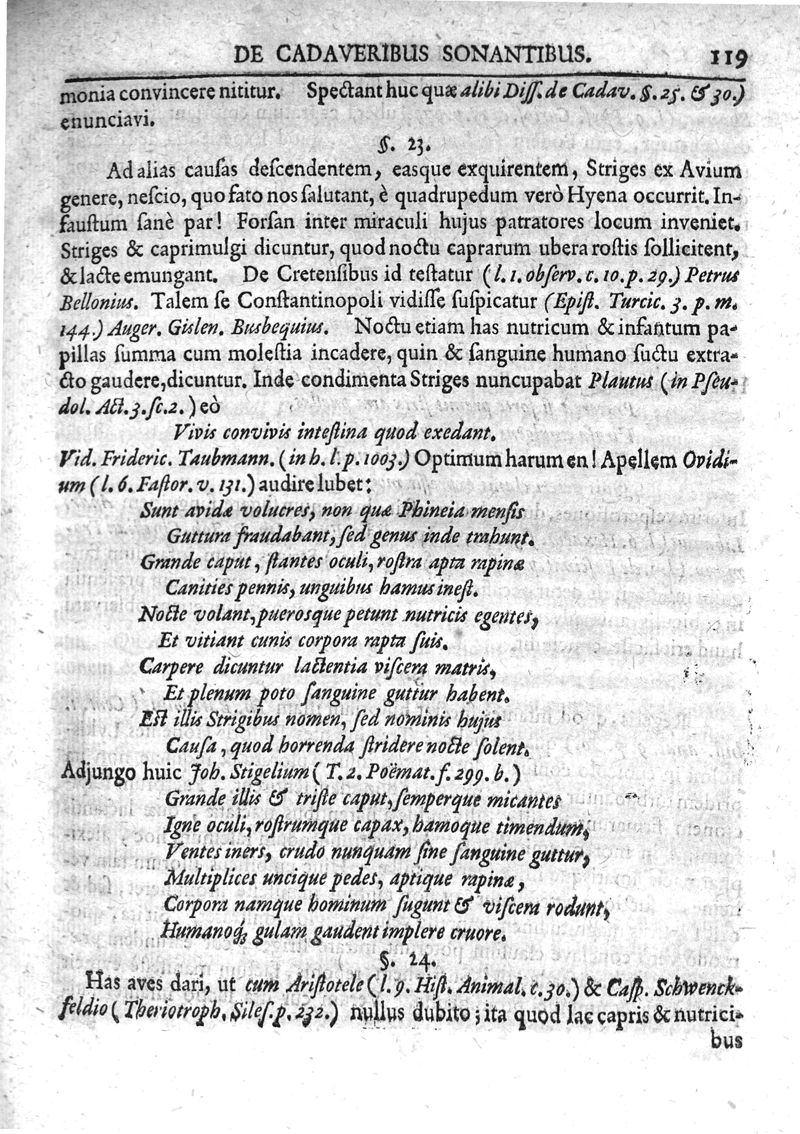 DE CADAVERIBUS SONANTIBUS. 119
monia convincere nititur. Spectant huc quæ alibi Diſſ. de Cadav. §. 25. & 30.)
enunciavi.
§. 23.
Ad alias cauſas deſcendentem, easque exquirentem, Striges ex Avium
genere, neſcio, quo fato nos ſalutant, è quadrupedum verò Hyena occurrit. In-
fauſtum ſanè par! Forſan inter miraculi hujus patratores locum inveniet.
Striges & caprimulgi dicuntur, quod noctu caprarum ubera roſtis ſollicitent,
& lacte emungant. De Cretenſibus id teſtatur (l. 1. obſerv. c. 10. p. 29.) Petrus
Bellonius. Talem ſe Conſtantinopoli vidiſſe ſuſpicatur (Epiſt. Turcic. 3. p. m.
144.) Auger. Gislen. Busbequius. Noctu etiam has nutricum & infantum pa-
pillas ſumma cum moleſtia incadere, quin & ſanguine humano ſuctu extra-
cto gaudere, dicuntur. Inde condimenta Striges nuncupabat Plautus (in Pſeu-
dol. Act. 3. ſc. 2.) eò
Vivis convivis inteſtina quod exedant.
Vid. Frideric. Taubmann. (in h. l. p. 1003.) Optimum harum en! Apellem Ovidi-
um (l. 6. Faſtor. v. 131.) audire lubet:
Sunt avidæ volucres, non quæ Phineia menſis
Guttura fraudabant, ſed genus inde trahunt.
Grande caput, ſtantes oculi, roſtra apta rapinæ
Canities pennis, unguibus hamus ineſt.
Nocte volant, puerosque petunt nutricis egentes,
Et vitiant cunis corpora rapta ſuis.
Carpere dicuntur lactentia viſcera matris,
Et plenum poto ſanguine guttur habent.
Eſt illis Strigibus nomen, ſed nominis hujus
Cauſa, quod horrenda ſtridere nocte ſolent.
Adjungo huic Joh. Stigelium (T. 2. Poëmat. f. 299. b.)
Grande illis & triſte caput, ſemperque micantes
Igne oculi, roſtrumque capax, hamoque timendum,
Ventes iners, crudo nunquam ſine ſanguine guttur,
Multiplices uncique pedes, aptique rapinæ,
Corpora namque hominum ſugunt & viſcera rodunt,
Humanoq; gulam gaudent implere cruore.
§. 24.
Has aves dari, ut cum Ariſtotele (l. 9. Hiſt. Animal. c. 30.) & Caſp. Schwenck-
feldio (Theriotroph. Sileſ. p. 232.) nullus dubito; ita quod lac capris & nutrici-
bus